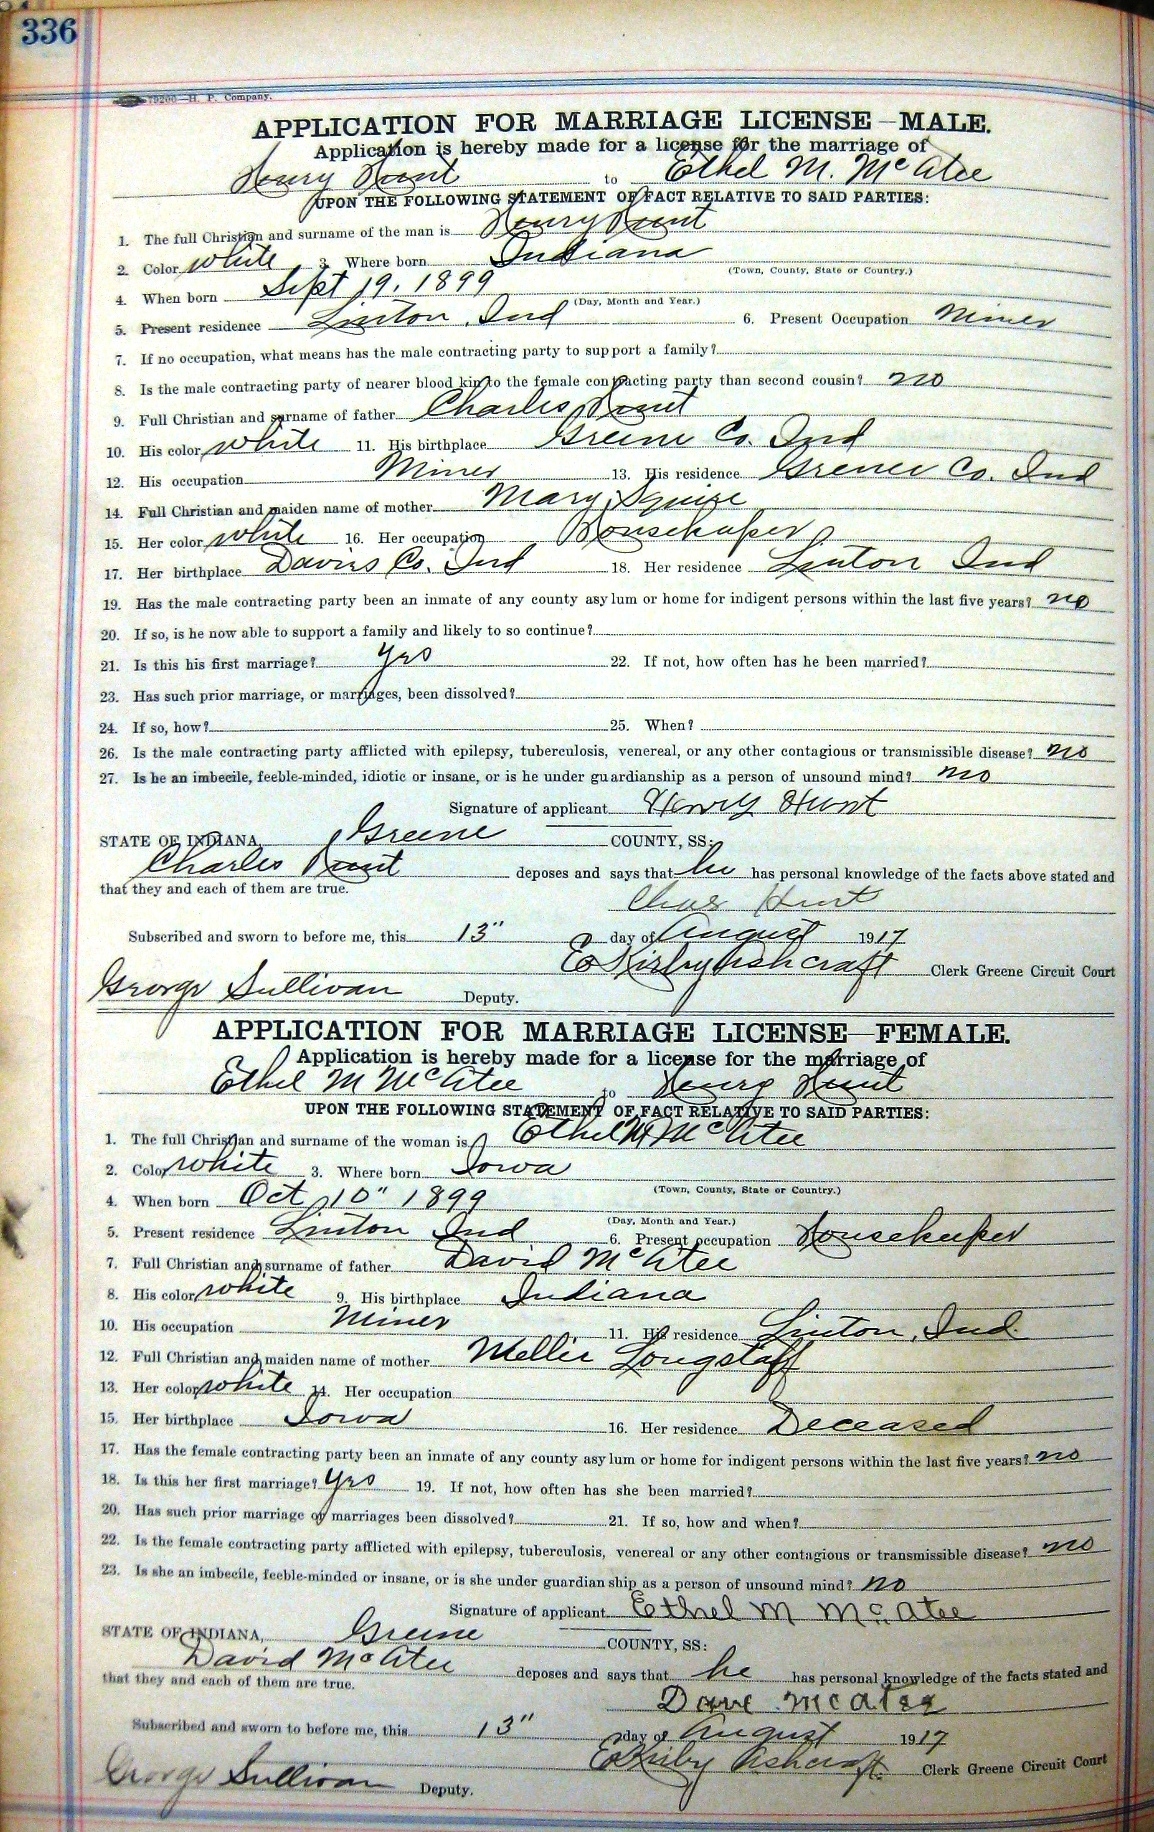 336
19200—H. P. Company.
APPLICATION FOR MARRIAGE LICENSE—MALE.
Application is hereby made for a license for the marriage of
Henry Hunt to Ethel M. McAtee
UPON THE FOLLOWING STATEMENT OF FACT RELATIVE TO SAID PARTIES:
1. The full Christian and surname of the man is Henry Hunt
2. Color white 3. Where born Indiana
(Town, County, State or Country.)
4. When born Sept 19, 1899
(Day, Month and Year.)
5. Present residence Linton, Ind 6. Present Occupation Miner
7. If no occupation, what means has the male contracting party to support a family?
8. Is the male contracting party of nearer blood kin to the female contracting party than second cousin? no
9. Full Christian and surname of father Charles Hunt
10. His color white 11. His birthplace Greene Co. Ind
12. His occupation Miner 13. His residence Greene Co. Ind
14. Full Christian and maiden name of mother Mary Squire
15. Her color white 16. Her occupation Housekeeper
17. Her birthplace Daviess Co. Ind 18. Her residence Linton Ind
19. Has the male contracting party been an inmate of any county asylum or home for indigent persons within the last five years? no
20. If so, is he now able to support a family and likely to so continue?
21. Is this his first marriage? yes 22. If not, how often has he been married?
23. Has such prior marriage, or marriages, been dissolved?
24. If so, how? 25. When?
26. Is the male contracting party afflicted with epilepsy, tuberculosis, venereal, or any other contagious or transmissible disease? no
27. Is he an imbecile, feeble-minded, idiotic or insane, or is he under guardianship as a person of unsound mind? no
Signature of applicant Henry Hunt
STATE OF INDIANA, Greene COUNTY, SS:
Charles Hunt deposes and says that he has personal knowledge of the facts above stated and
that they and each of them are true.
Chas Hunt
Subscribed and sworn to before me, this 13" day of August 1917
E Kirby Ashcraft Clerk Greene Circuit Court
George Sullivan Deputy.
APPLICATION FOR MARRIAGE LICENSE—FEMALE.
Application is hereby made for a license for the marriage of
Ethel M McAtee to Henry Hunt
UPON THE FOLLOWING STATEMENT OF FACT RELATIVE TO SAID PARTIES:
1. The full Christian and surname of the woman is Ethel M McAtee
2. Color white 3. Where born Iowa
(Town, County, State or Country.)
4. When born Oct 10" 1899
(Day, Month and Year.)
5. Present residence Linton Ind 6. Present occupation Housekeeper
7. Full Christian and surname of father David McAtee
8. His color white 9. His birthplace Indiana
10. His occupation Miner 11. His residence Linton, Ind.
12. Full Christian and maiden name of mother Mellie Longstaff
13. Her color white 14. Her occupation
15. Her birthplace Iowa 16. Her residence Deceased
17. Has the female contracting party been an inmate of any county asylum or home for indigent persons within the last five years? no
18. Is this her first marriage? yes 19. If not, how often has she been married?
20. Has such prior marriage or marriages been dissolved? 21. If so, how and when?
22. Is the female contracting party afflicted with epilepsy, tuberculosis, venereal or any other contagious or transmissible disease? no
23. Is she an imbecile, feeble-minded or insane, or is she under guardianship as a person of unsound mind? no
Signature of applicant Ethel M McAtee
STATE OF INDIANA, Greene COUNTY, SS:
David McAtee deposes and says that he has personal knowledge of the facts stated and
that they and each of them are true.
Dave McAtee
Subscribed and sworn to before me, this 13" day of August 1917
E Kirby Ashcraft Clerk Greene Circuit Court
George Sullivan Deputy.